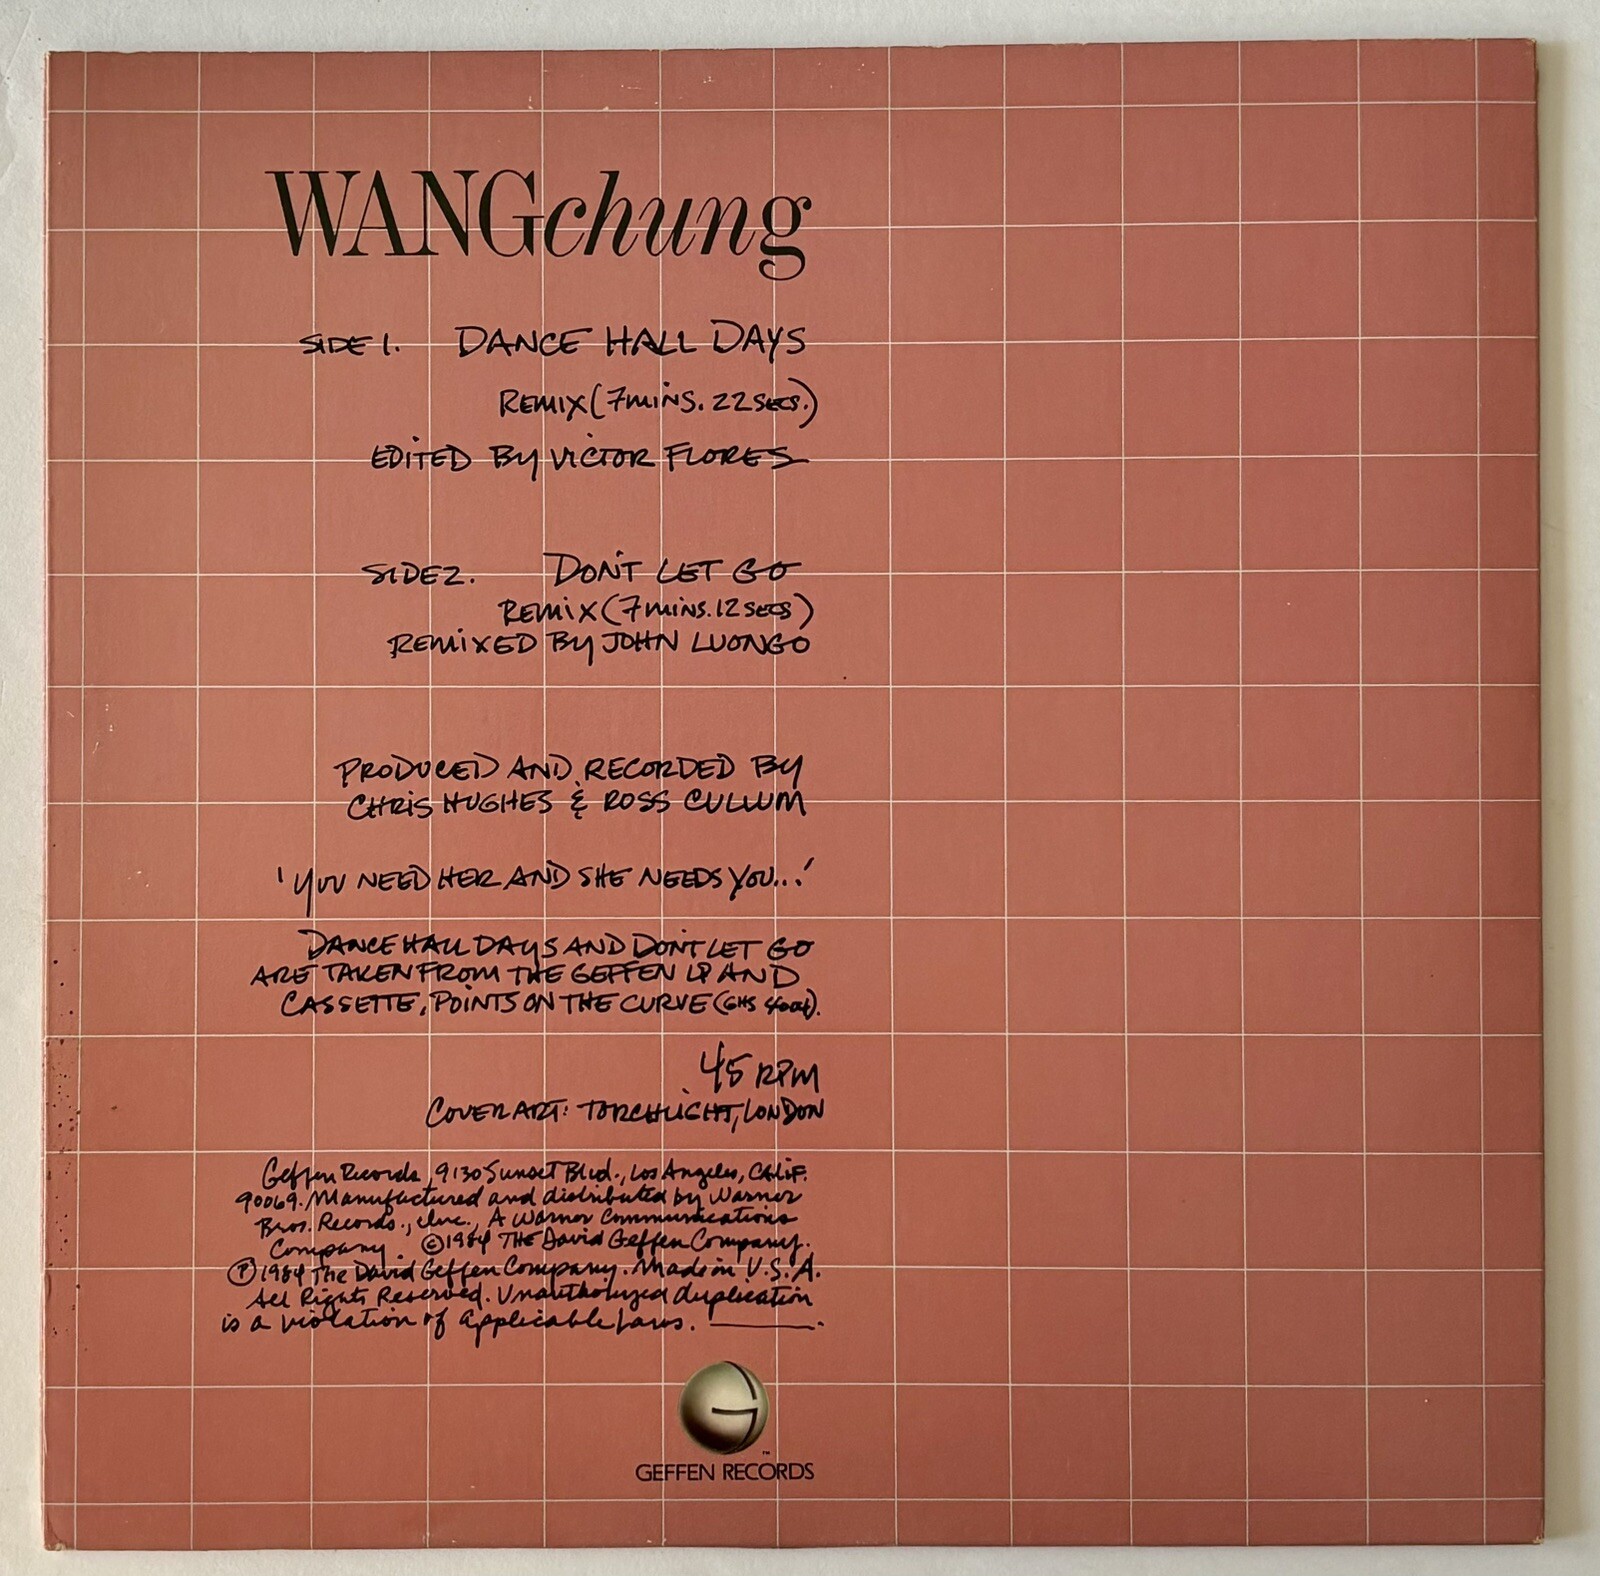 WANGchung
SIDE 1. DANCE HALL DAYS
REMIX (7 MINS. 22 SECS.)
EDITED BY VICTOR FLORES
SIDE 2. DON'T LET GO
REMIX (7 MINS. 12 SECS)
REMIXED BY JOHN LUONGO
PRODUCED AND RECORDED BY
CHRIS HUGHES & ROSS CULLUM
'YOU NEED HER AND SHE NEEDS YOU...'
DANCE HALL DAYS AND DON'T LET GO
ARE TAKEN FROM THE GEFFEN LP AND
CASSETTE, POINTS ON THE CURVE (GHS 4004).
45 RPM
COVER ART: TORCHLIGHT, LONDON
Geffen Records, 9130 Sunset Blvd., Los Angeles, CALIF.
90069. Manufactured and distributed by Warner
Bros. Records., Inc., A Warner Communications
Company. ©1984 THE David Geffen Company.
℗1984 The David Geffen Company. Made in U.S.A.
All Rights Reserved. Unauthorized duplication
is a violation of applicable Laws.
G
™
GEFFEN RECORDS